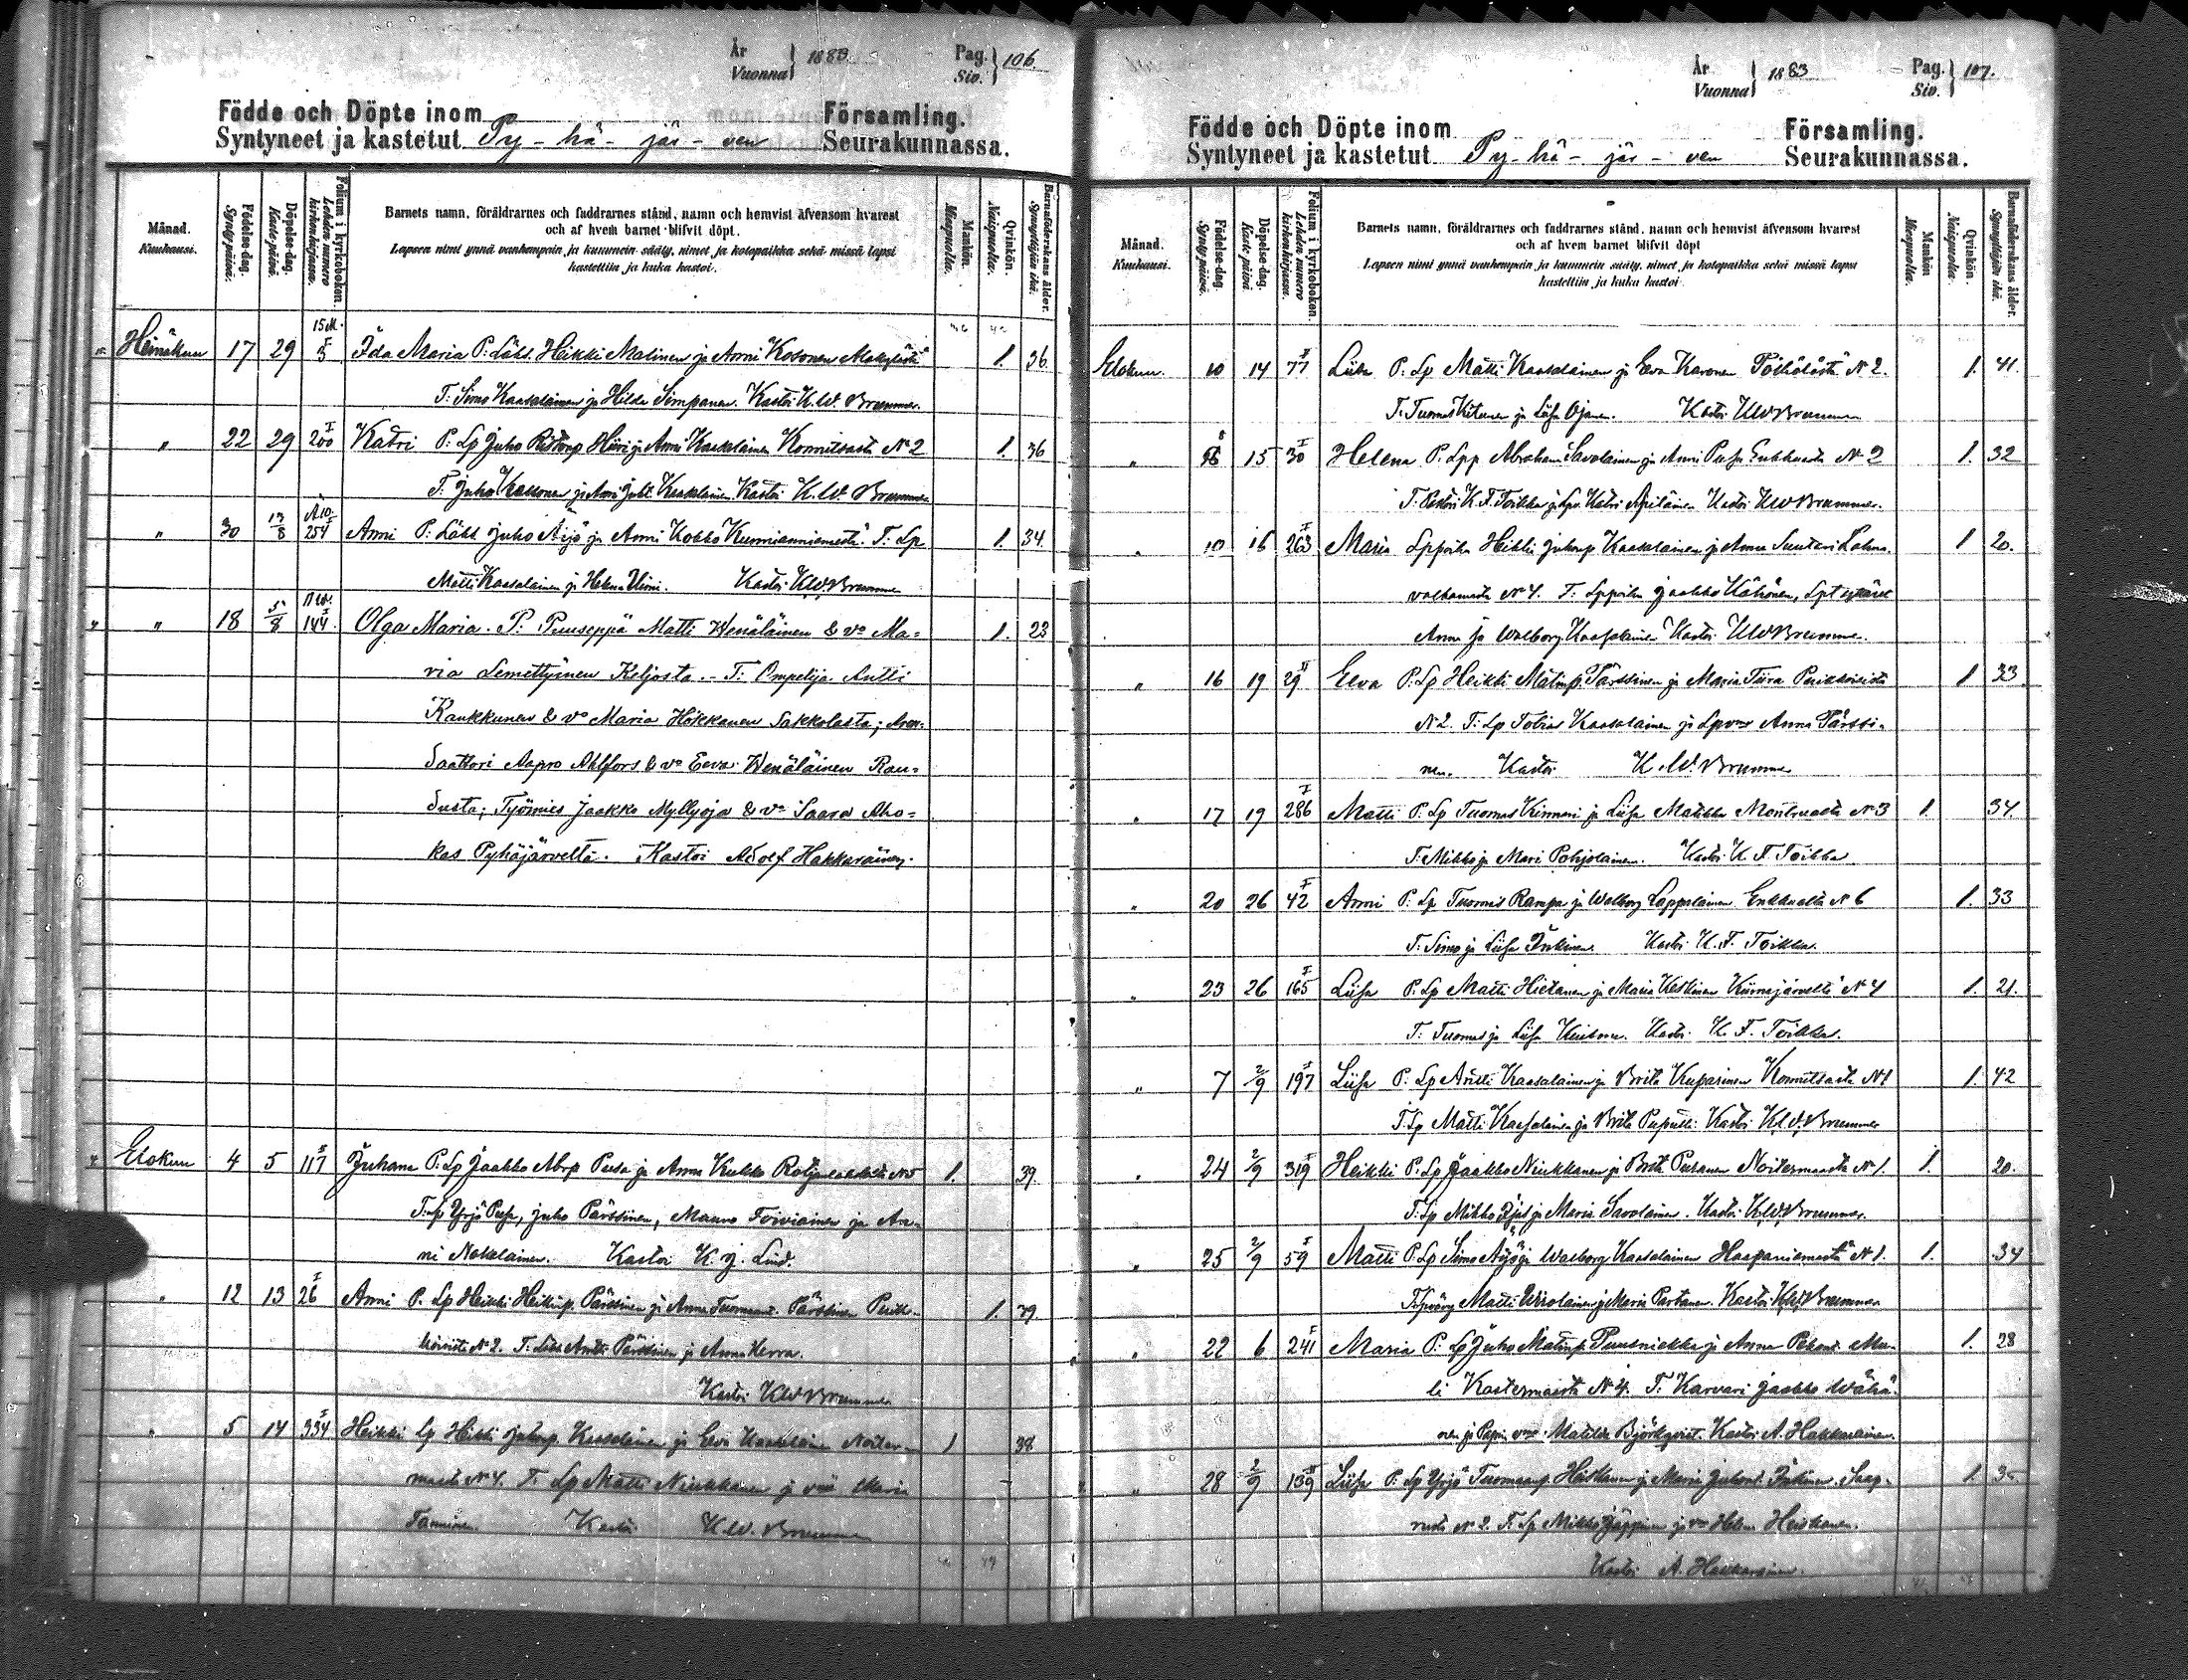 År
Vuonna 1883
Pag.
Siv. 106.
Födde och Döpte inom Församling.
Syntyneet ja kastetut Py-hä-jär-ven Seurakunnassa.
Månad.
Kuukausi.
Födelse-dag.
Synty-päivä.
Döpelse-dag.
Kaste-päivä.
Folium i kyrkoboken.
Lehden numero kirkonkirjassa.
Barnets namn, föräldrarnes och faddrarnes stånd, namn och hemvist äfvensom hvarest
och af hvem barnet blifvit döpt.
Lapsen nimi ynnä vanhempain ja kummein sääty, nimet ja kotopaikka sekä missä lapsi
kastettiin ja kuka kastoi.
Mankön.
Miespuolia.
Qvinkön.
Naispuolia.
Barnaföderskans ålder.
Synnyttäjän ikä.
15 M.
Heinäkuu 17 29 I 3 Ida Maria P: Läks. Heikki Malinen ja Anni Kosonen 1. 36.
T: Simo Kaasalainen ja Hilda Simpanen. Kastoi K.W. Brummer.
" 22 29 I 200 Katri P: Lp Juho Hüri ja Anni Kaasalainen Konnitsasta No 2 1. 36
T. Juho ja Anni Kaasalainen Kastoi K.W. Brummer
" 30 13/8 I 254 Anni P: Läks Juho Äijö ja Anni Kokko Kunnianniemestä. T: Lp 1. 34.
Matti Kaasalainen ja Helena. Kastoi K.W. Brummer
" 18 5/8 I 144 Olga Maria. P: Puuseppä Matti Wenäläinen & vo Ma= 1. 23
ria Lemettyinen Keljosta. - T: Ompelija Antti
Kaukkunen & vo Maria Hökkanen Sakkolasta; Aren=
daattori Aapro Ahlfors & vo Eeva Wenäläinen Rau=
dusta; Työmies Jaakko Myllyoja & vo Saara Aho=
kas Pyhäjärveltä. Kastoi Adolf Hakkarainen.
Elokuu 4 5 II 117 Juhana P: Lp Jaakko Abrp Pusa ja Anna Kukko No 5 1. 39.
T: Lp Yrjö Pusa, Juho Pärssinen, Mauno Toiviainen ja An=
ni Nokelainen. Kastoi K. J. Lind.
" 12 13 I 26 Anni P. Lp Heikki Heikinp. Pärssinen ja Anna Tuomaant. Pärssinen 1. 39.
No 2. T: Läks Antti Pärssinen ja Anna Kerra.
Kastoi K.W Brummer
" 5 14 I 334 Heikki Lp Heikki Juhanp. Kaasalainen ja Eeva Kaasalainen Noiter- 1 38
maasta No 4. T. Lp Matti Niukkanen ja Maria
Tanninen. Kastoi K.W. Brummer
År
Vuonna 1883
Pag.
Siv. 107.
Födde och Döpte inom Församling.
Syntyneet ja kastetut Py-hä-jär-ven Seurakunnassa.
Månad.
Kuukausi.
Födelse-dag.
Synty-päivä.
Döpelse-dag.
Kaste-päivä.
Folium i kyrkoboken.
Lehden numero kirkonkirjassa.
Barnets namn, föräldrarnes och faddrarnes stånd, namn och hemvist äfvensom hvarest
och af hvem barnet blifvit döpt
Lapsen nimi ynnä vanhempain ja kummein sääty, nimet ja kotopaikka sekä missä lapsi
kastettiin ja kuka kastoi.
Mankön
Miespuolia.
Qvinkön.
Naispuolia.
Barnaföderskans ålder.
Synnyttäjän ikä.
Elokuu. 10 14 II 77 Liisa P: Lp Matti Kaasalainen ja Eeva Karonen No 2. 1. 41.
T: Tuomas ja Liisa Ojanen. Kastoi KWBrummer
" 15 I 30 Helena P. Lpp Abraham Savolainen ja Anni Pusa Enkkuasta No 2 1. 32
T: K. F. Toikka ja Katri Kastoi KWBrummer.
" 10 16 I 263 Maria Lppoika Heikki Juhanp Kaasalainen ja Anna Suutari Lahna- 1 20.
valkamasta No 4. T: Lppoika Jaakko Kähönen, Lpt tytäret
Anna ja Walborg Kaasalainen Kastoi KWBrummer.
" 16 19 II 29 Eeva P: Lp Heikki Matinp. Pärssinen ja Maria Tiira 1 33
No 2. T: Lp Tobias Kaasalainen ja Lpvmo Anna Pärssi-
nen. Kastoi K.W. Brummer
" 17 19 I 286 Matti P. Lp Tuomas Kinnari ja Liisa Matikka Montruasta No 3 1. 34.
T: Mikko ja Mari Pohjolainen. Kastoi K. F. Toikka
" 20 26 I 42 Anni P: Lp Tuomas Rampa ja Walborg Lappalainen Enkkualta No 6 1. 33
T: Simo ja Liisa Inkinen. Kastoi K. F. Toikka.
" 23 26 I 165 Liisa P: Lp Matti Hietanen ja Maria Keskinen Kiimajärveltä No 4 1. 21.
T: Tuomas ja Liisa. Kastoi K. F. Toikka.
" 7 2/9 I 197 Liisa P: Lp Antti Kaasalainen ja Brita Kuparinen Konnitsasta No 1 1. 42
T: Lp Matti Kaasalainen ja Brita Puputti Kastoi K.W. Brummer
" 24 2/9 I 319 Heikki P: Lp Jaakko Niukkanen ja Brita Puranen Noitermaasta No 1. 1. 20.
T: Lp Mikko ja Maria Savolainen. Kastoi K.W. Brummer.
" 25 2/9 I 59 Matti P. Lp Simo Äijö ja Walborg Kaasalainen Haapaniemestä No 1. 1. 34
Matti ja Maria Partanen. Kastoi K.W. Brummer
" 22 6 I 241 Maria P: Lp Juho Matinp. Puusniekka ja Anna 1. 28
No 4. T: Karvari Jaakko Wähä-
nen ja Matilda Björkqvist. Kastoi A. Hakkarainen.
" 28 2/9 II 139 Liisa P: Lp Yrjö Tuomaanp. Heiskanen ja Maria Juhont. Inkinen. Saap- 1.
rusta No 2. T: Lp Mikko Jäppinen ja vo Helena Heiskanen.
Kastoi A. Hakkarainen.